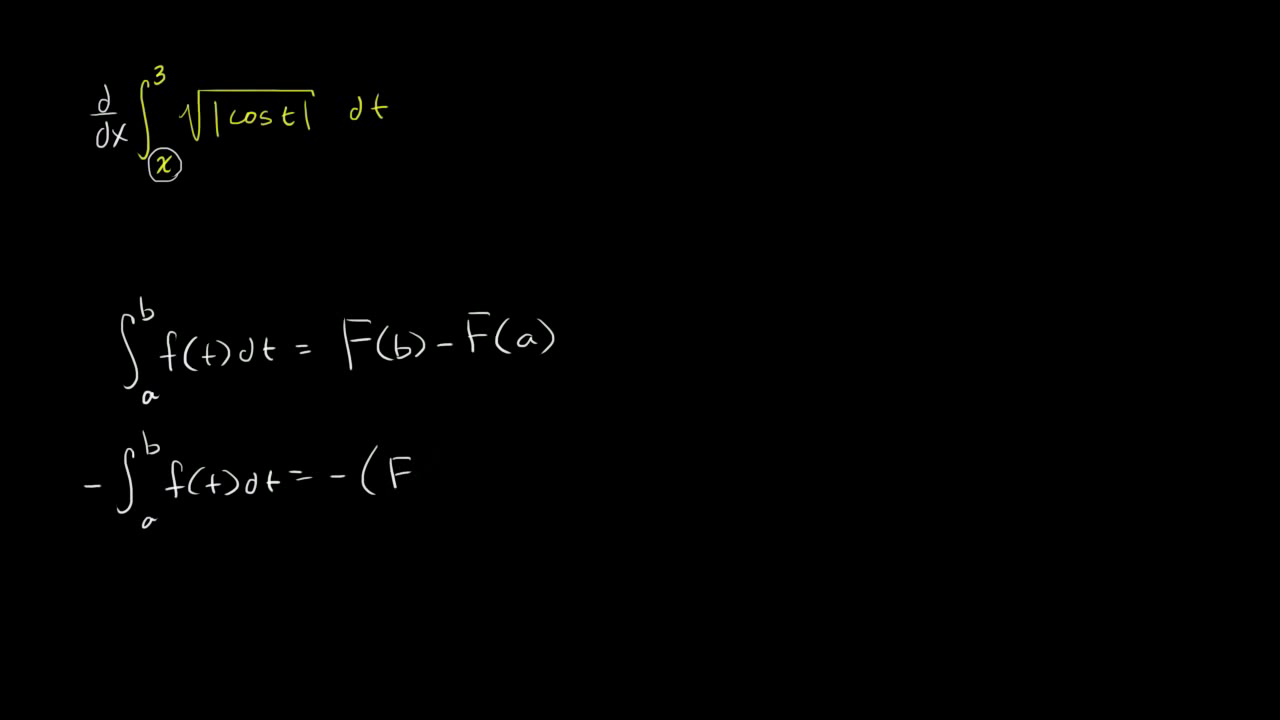 d/dx ∫_x^3 √|cos t| dt
∫_a^b f(t)dt = F(b) - F(a)
- ∫_a^b f(t)dt = - (F